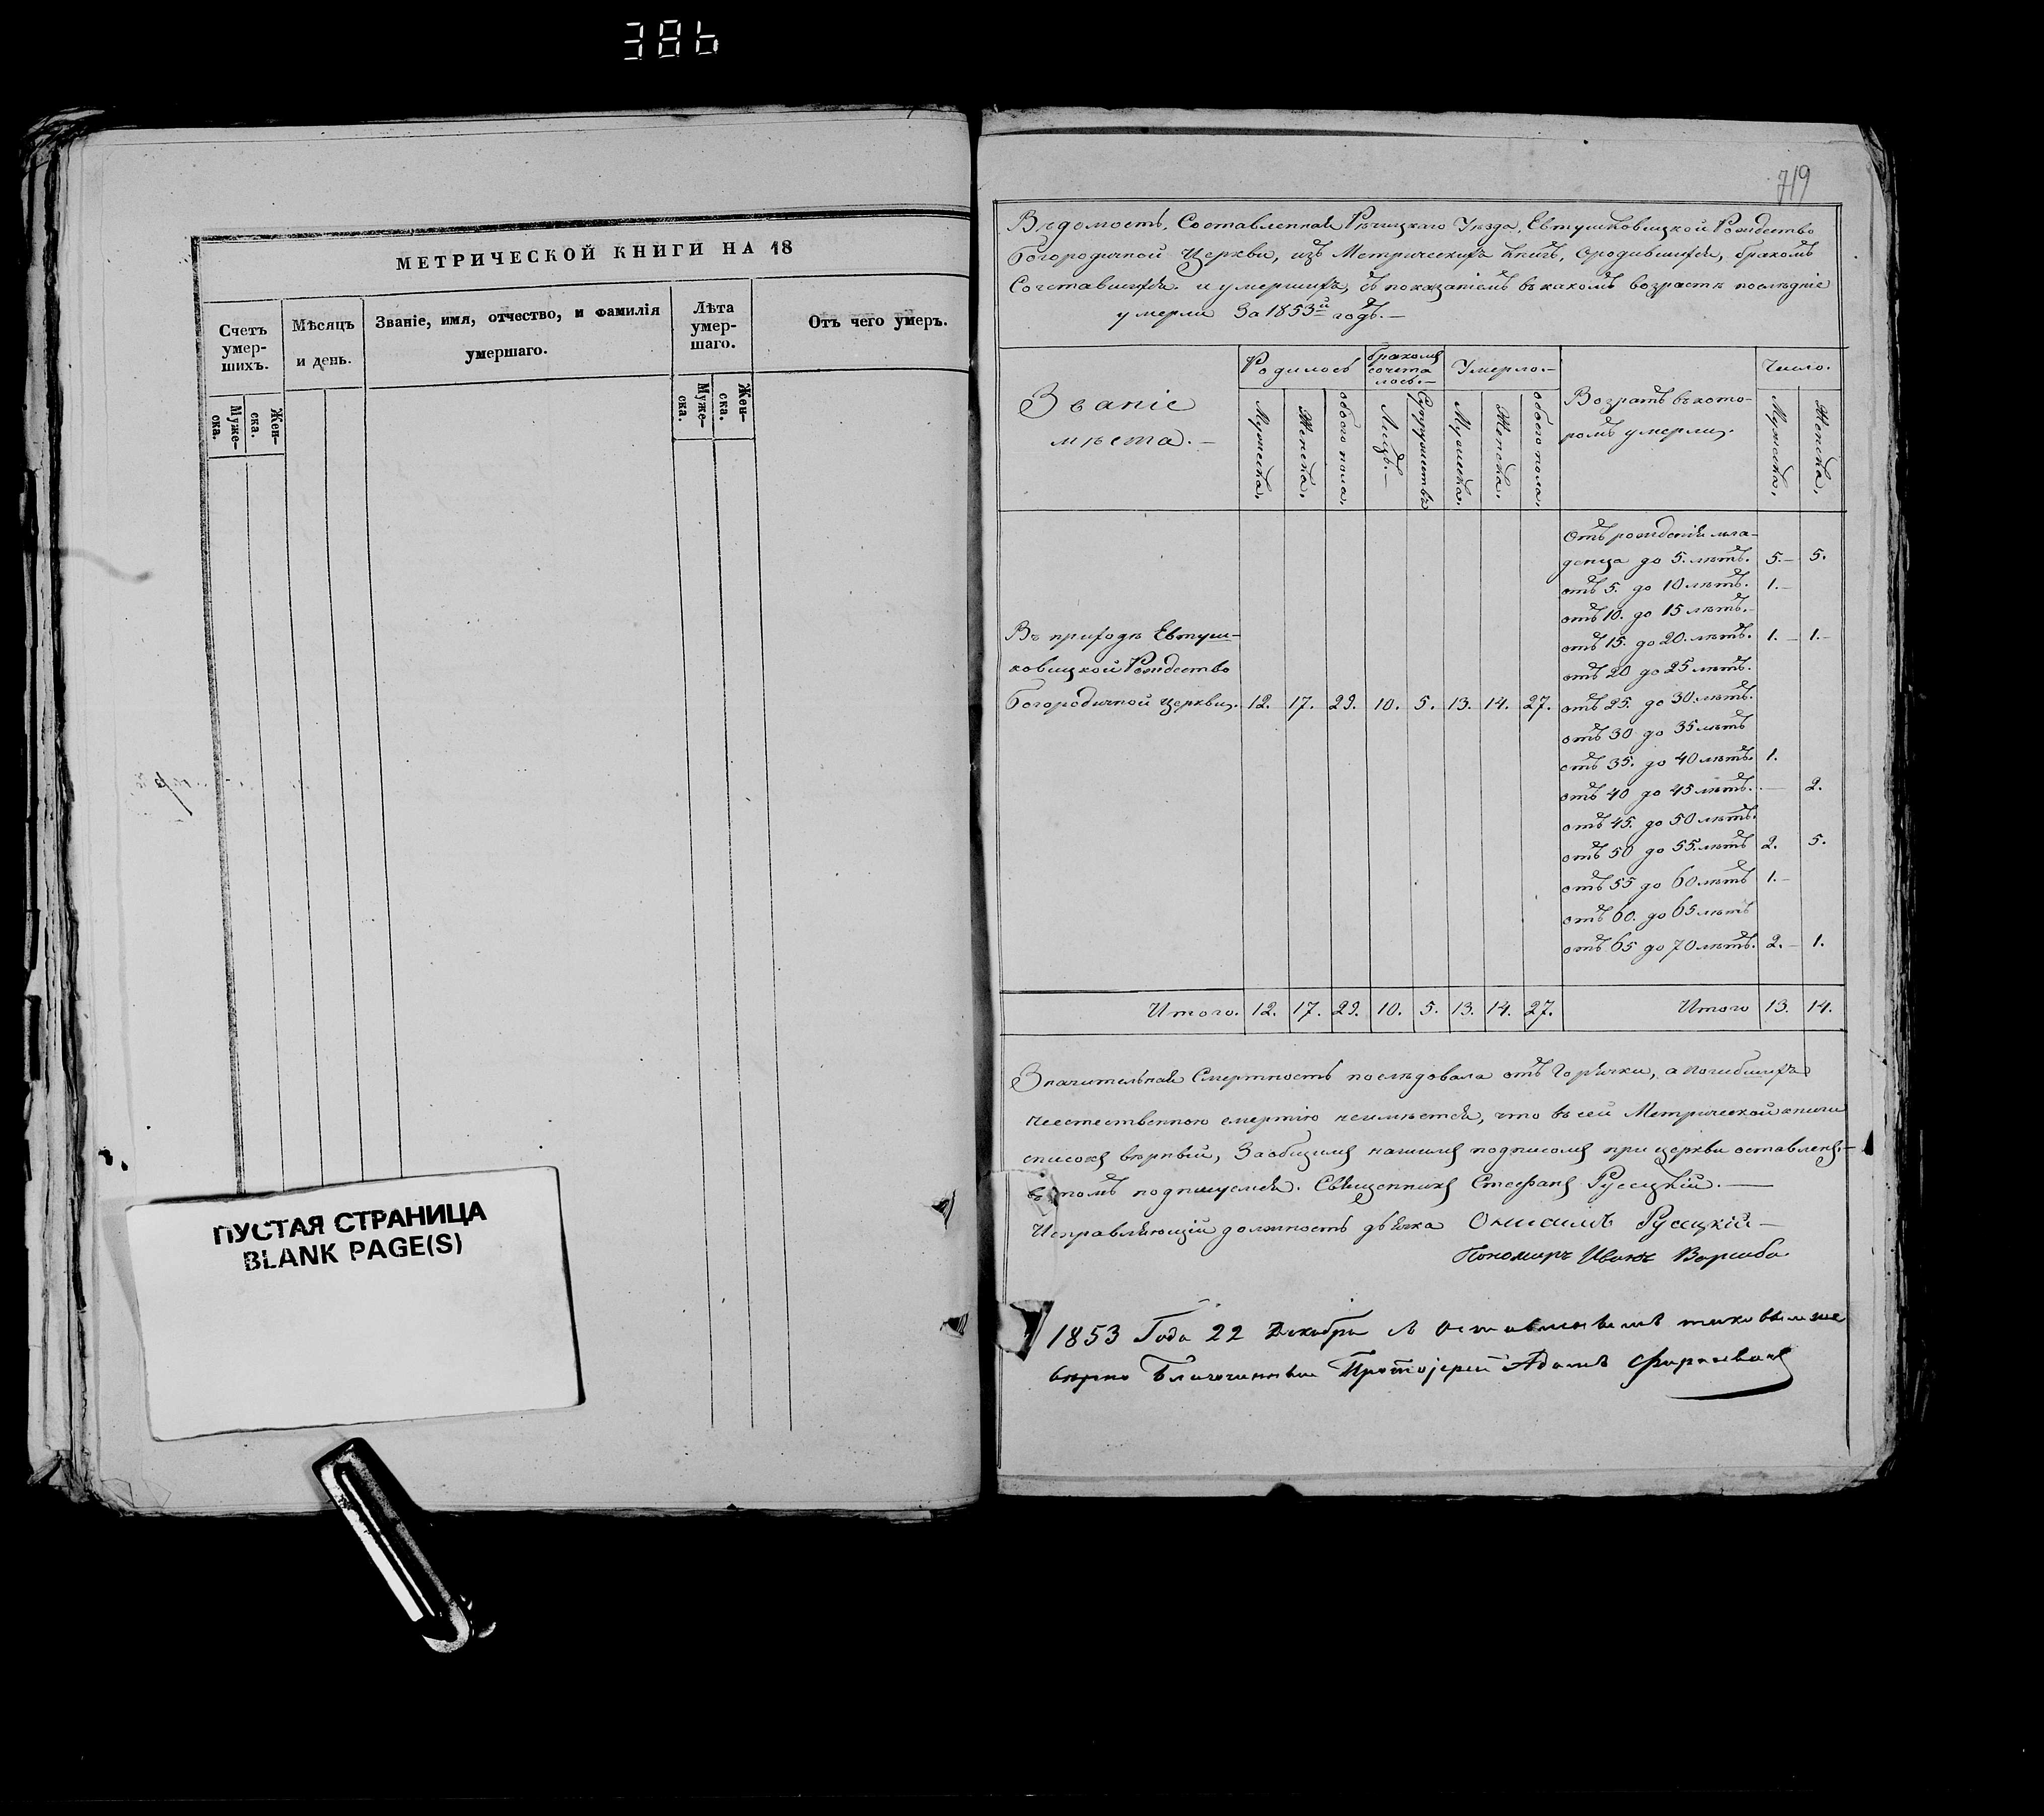 386
МЕТРИЧЕСКОЙ КНИГИ НА 18
Счетъ умер-шихъ.
Мѣсяцъ и день.
Званіе, имя, отчество, и фамилія умершаго.
Лѣта умер-шаго.
Отъ чего умеръ.
Муже-ска.
Жен-ска.
Муже-ска.
Жен-ска.
ПУСТАЯ СТРАНИЦА
BLANK PAGE(S)
719
Вѣдомость, Составленная Рѣчицкаго Уѣзда, Евтушковицкой Рождество
богородичной Церкви, изъ Метрическихъ книгъ, о родившихся, бракомъ
Сочетавшихся и умершихъ, съ показаніемъ въ какомъ возрастѣ послѣдніе
умерли За 1853й годъ.—
Званіе мѣста.—
Родилось
бракомъ сочета лось.—
Умерло.—
Возрастъ въ кото-ромъ умерли.
Число.
Мужеска,
Женска,
обоего пола,
Лицъ.—
Супружествъ
Мужеска,
Женска,
обоего пола,
Мужеска,
Женска,
Отъ рожденія мла-
денца до 5. лѣтъ. 5.— 5.
отъ 5. до 10 лѣтъ. 1.—
отъ 10. до 15 лѣтъ.—
отъ 15. до 20. лѣтъ. 1.— 1.—
отъ 20 до 25 лѣтъ.
Въ приходѣ Евтуш-
ковицкой Рождество
богородичной церкви. 12. 17. 29. 10. 5. 13. 14. 27. отъ 25. до 30. лѣтъ.
отъ 30 до 35 лѣтъ
отъ 35. до 40 лѣтъ. 1.
отъ 40 до 45 лѣтъ. — 2.
отъ 45. до 50 лѣтъ.
отъ 50 до 55. лѣтъ 2. 5.
отъ 55 до 60 лѣтъ 1.—
отъ 60. до 65 лѣтъ
отъ 65 до 70 лѣтъ. 2.— 1.
Итого. 12. 17. 29. 10. 5. 13. 14. 27. Итого 13. 14.
Значительная Смертность послѣдовала отъ Горячки, а погибшихъ
неестественною смертію неимѣется, что въ сей Метрической книги
списокъ вѣрный, За общимъ нашимъ подписомъ при церкви оставленъ,—
въ томъ подпишемся. Священникъ Стефанъ Русецкій.—
Исправляющій должность дьячка Онисимъ Русецкій—
Пономарь Иванъ
1853 Года 22 Декабря съ оставленнымъ таковымже
вѣрно Благочинный Протоіерей Адамъ